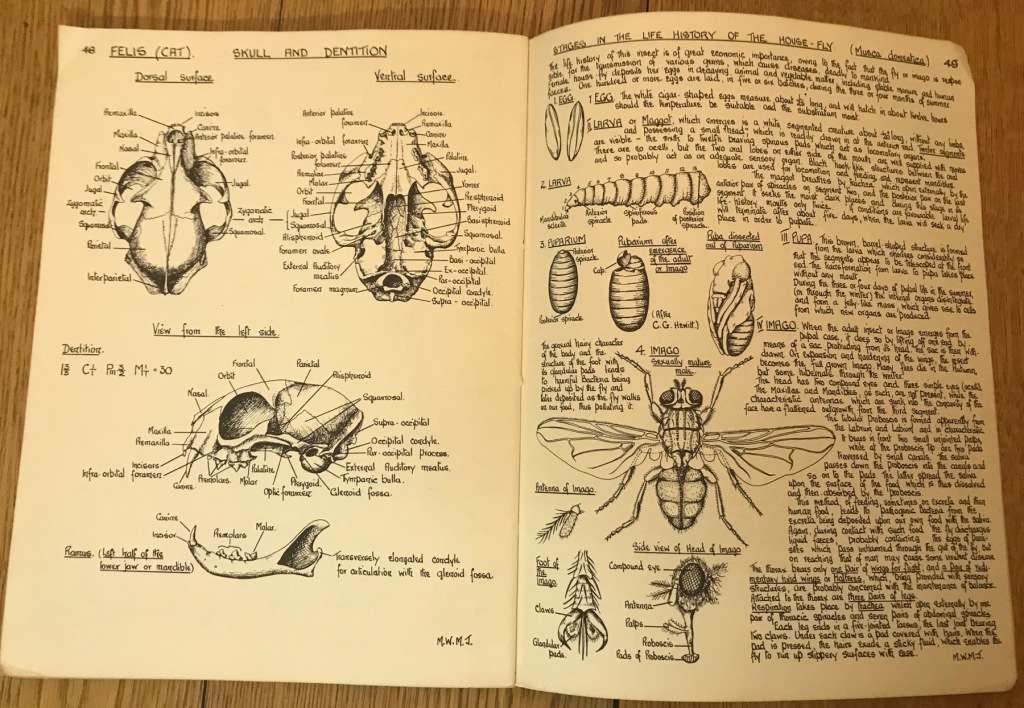 48 FELIS (CAT). SKULL AND DENTITION
Dorsal Surface.
Premaxilla.
Maxilla
Nasal
Frontal
Orbit
Jugal
Zygomatic arch
Squamosal
Parietal
Interparietal
Incisors
Canine
Anterior palatine foramen.
Infra-orbital foramen.
Jugal.
Zygomatic arch
Squamosal.
Ventral surface.
Anterior palatine foramen
Infra-orbital foramen
Posterior palatine foramen
Premolar
Molar
Orbit
Frontal
Jugal
Squamosal
Alisphenoid
Foramen ovale
External Auditory meatus
Foramen magnum
Incisors
Premaxilla
Canine
Maxilla
Palatine
Jugal.
Vomer
Presphenoid
Pterygoid
Basisphenoid
Squamosal.
Tympanic bulla
Basi-occipital
Ex-occipital
Par-occipital
Occipital condyle.
Supra-occipital.
View from the left side.
Dentition.
= 30
Frontal
Orbit
Nasal.
Parietal
Alisphenoid
Squamosal.
Maxilla
Premaxilla.
Supra-occipital
Occipital condyle.
Par-occipital process.
External Auditory meatus.
Tympanic bulla.
Glenoid fossa.
Incisors
Infra-orbital foramen
Canine
Premolars
Molar
Palatine
Optic foramen
Pterygoid.
Canine
Incisor
Premolars
Molar.
Ramus. (Left half of the
lower jaw or mandible)
Transversely elongated condyle
for articulation with the glenoid fossa
M.W.M.J.
STAGES IN THE LIFE HISTORY OF THE HOUSE-FLY (Musca domestica) 49
The life history of this insect is of great economic importance, owing to the fact that the fly or imago is respon
sible for the transmission of various germs, which cause diseases, deadly to mankind
female house fly deposits her eggs in decaying animal and vegetable matter including stable manure and human
faeces. One hundred or more eggs are laid, in five or six batches, during the three or four months of summer
1. EGG
I EGG. The white cigar-shaped eggs measure about long, and will hatch in about twelve hours
should the temperature be suitable and the substratum moist.
II LARVA or Maggot, which emerges is a white segmented creature about long, without any limbs,
and possessing a small "head"
are visible - the sixth to twelfth bearing spinous pads which act as locomotory organs.
There are no ocelli, but the two oral lobes on either side of the mouth, are well supplied with nerves
and so probably act as an adequate sensory organ. Black hook like structures between the oral
lobes are used for locomotion and feeding and represent mandibles.
The maggot breathes by trachea, which open externally by the
anterior pair of spiracles on segment two, and the posterior two on the last
segment. It seeks the moist dark places and during this stage in its
life-history moults only twice. If conditions are favourable, larval life
will terminate after about five days, when the larva will seek a dry
place in order to pupate.
2. LARVA
Mandibular sclerite
Anterior spiracle
Spiniferous pads
Position of posterior spiracle.
3. PUPARIUM
Anterior spiracle.
Posterior spiracle
Puparium after
emergence
of the adult
or Imago
Cap
(After
C.G. Hewitt.)
Pupa dissected
out of Puparium
III PUPA. This brown, barrel-shaped structure is formed
from the larva which shrinks considerably so
that the segments appear to be telescoped at the front
end. The transformation from larva to pupa takes place
without any moult.
During the three or four days of pupal life in the summer,
(or through the winter) the internal organs disintegrate,
and form a jelly-like mass, which gives rise to cells
from which new organs are produced.
IV IMAGO. When the adult insect or imago emerges from the
pupal case, it does so by lifting off one end, by
means of a sac protruding from its head. The sac is then with-
drawn. On expansion and hardening of the wings, the insect
becomes the full grown imago. Many flies die in the Autumn,
but some hibernate through the winter.
The head has two compound eyes and three simple eyes (ocelli).
The Maxillae and Mandibles, as such, are not present, while the
characteristic antennae, which are sunk into the concavity of the
face have a flattened outgrowth from the third segment.
The tubular Proboscis is formed apparently from
the Labrum and Labium, and is characteristic.
It bears in front two small unjointed Palps,
while at the Proboscis tip are two pads
traversed by small canals. The saliva
passes down the Proboscis into the canals and
so on to the pads. The latter spread the saliva
upon the surface of the food, which is thus dissolved
and then absorbed by the Proboscis.
This method of feeding, sometimes on excreta and then
human food, leads to pathogenic bacteria from the
excreta being deposited upon our own food with the saliva.
Again, during contact with such food, the fly discharges
liquid faeces, probably containing the eggs of para-
sites which pass unharmed through the gut of the fly, but
on reaching that of man may cause some internal disease.
The thorax bears only one pair of wings for flight, and a pair of rudi-
mentary hind wings or halteres, which, being provided with sensory
structures, are probably concerned with the maintenance of balance.
Attached to the thorax are three pairs of legs.
Respiration takes place by trachea which open externally by one
pair of thoracic spiracles and seven pairs of abdominal spiracles.
Each leg ends in a five-jointed tarsus, the last joint bearing
two claws. Under each claw is a pad covered with hairs. When the
pad is pressed, the hairs exude a sticky fluid, which enables the
fly to run up slippery surfaces with ease.
M.W.M.J.
The general hairy character
of the body and the
structure of the foot with
its glandular pads leads
to harmful Bacteria being
picked up by the fly and
later deposited as the fly walks
on our food, thus polluting it.
4. IMAGO
Sexually mature
male.
Antenna of Imago.
Foot of
the
Imago.
Claws
Glandular
pads.
Side view of Head of Imago
Compound eye
Antenna
Palps
Proboscis
Pads of Proboscis